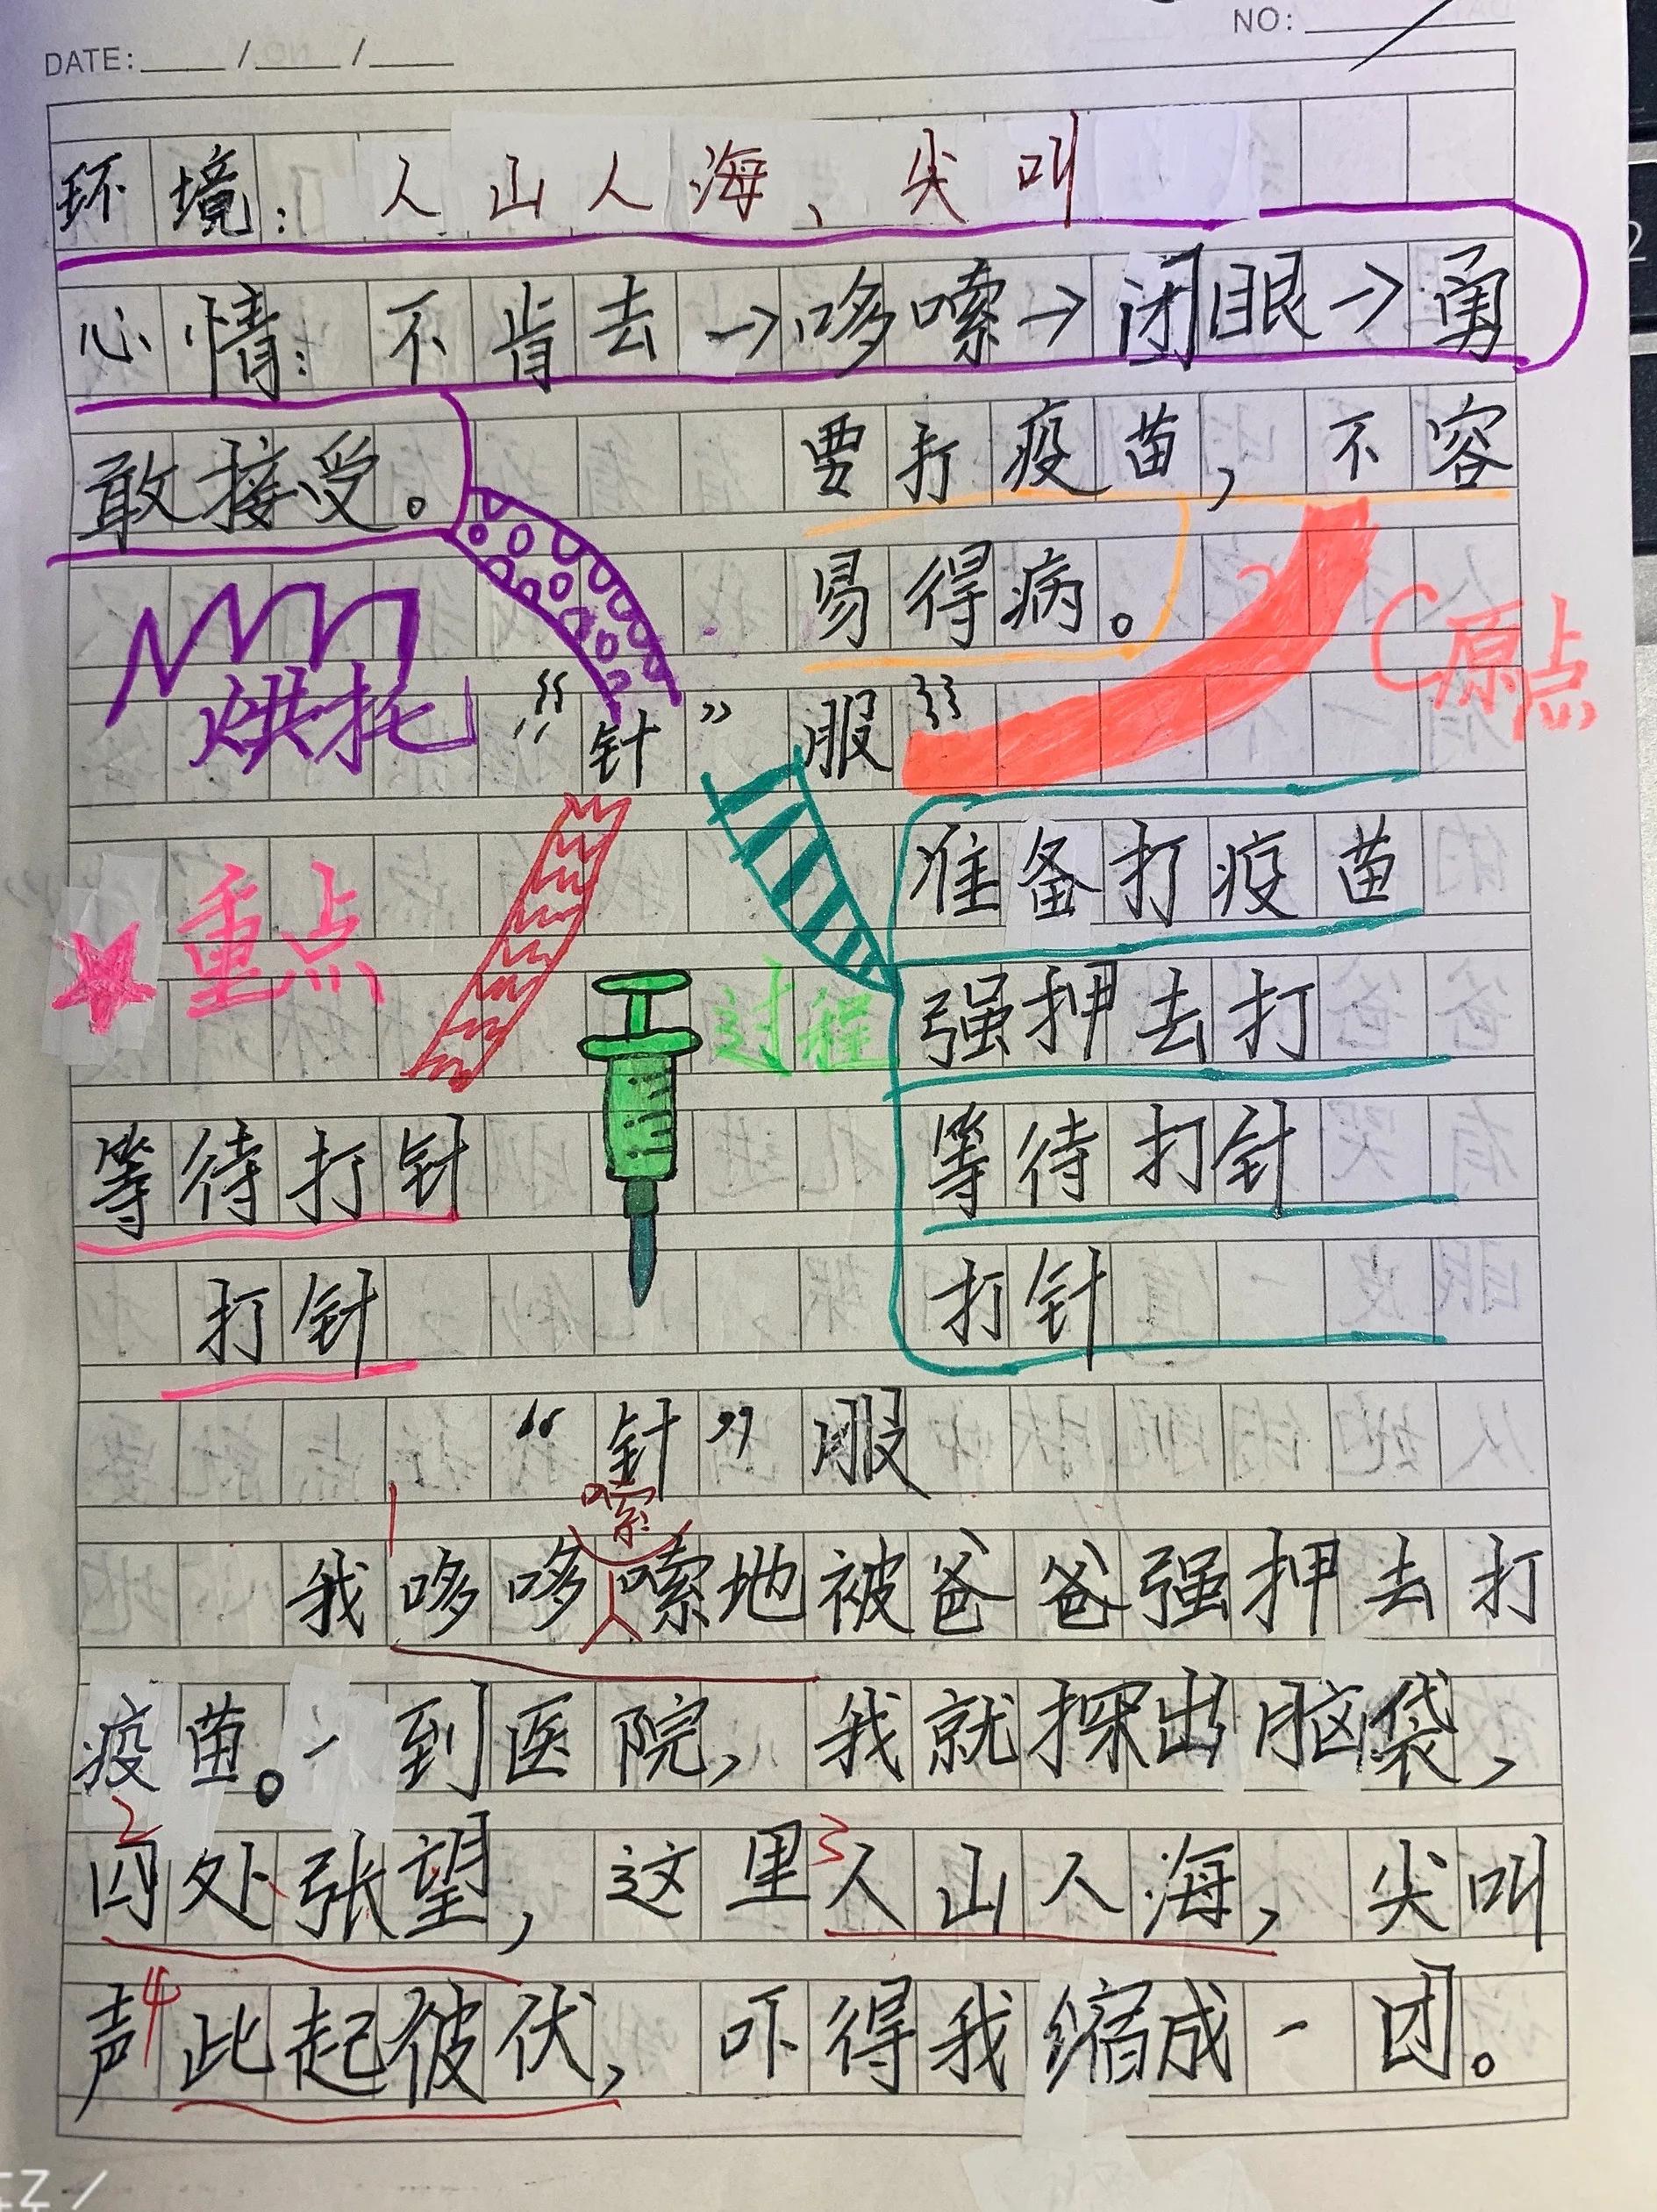 DATE: / /
NO:
环境：人山人海、尖叫
心情：不肯去→哆嗦→闭眼→勇
敢接受。
要打疫苗，不容
易得病。
烘托
C原点
“针”服
准备打疫苗
重点
过程
强押去打
等待打针
等待打针
打针
打针
“针”服
嗦
1
我哆哆嗦地被爸爸强押去打
疫苗。一到医院，我就探出脑袋，
2
3
四处张望，这里人山人海，尖叫
4
声此起彼伏，吓得我缩成一团。